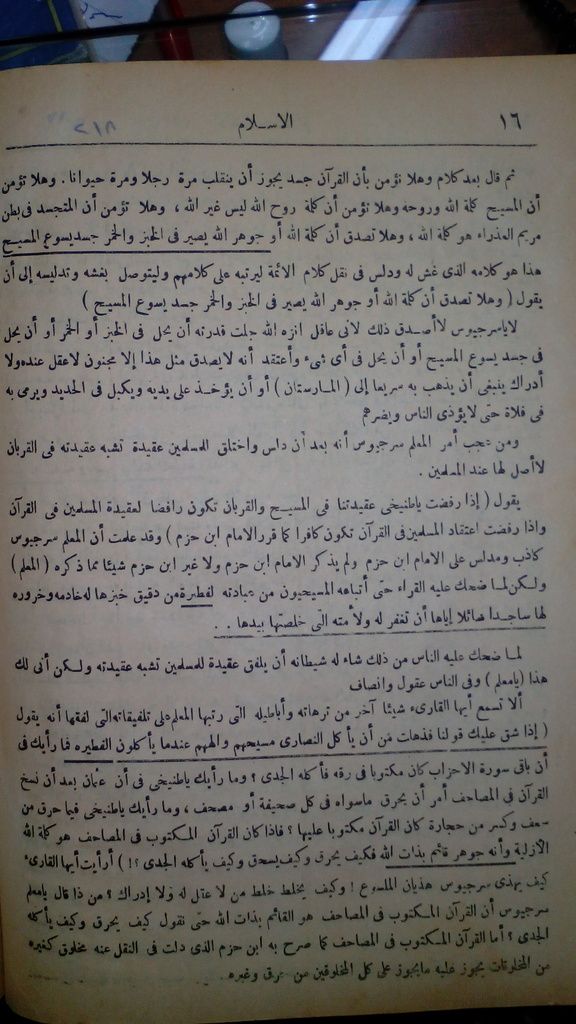 ١٦
الاسلام
٢١٨
ثم قال بعد كلام وهلا نؤمن بأن القرآن جسد يجوز أن ينقلب مرة رجلا ومرة حيوانا . وهلا تؤمن
أن المسيح كلمة الله وروحه وهلا تؤمن أن كلمة روح الله ليس غير الله ، وهلا تؤمن أن المتجسد فى بطن
مريم العذراء هو كلمة الله ، وهلا تصدق أن كلمة الله أو جوهر الله يصير فى الخبز والخمر جسد يسوع المسيح
هذا هو كلامه الذى غش له ودلس فى نقل كلام الائمة ليرتبه على كلامهم وليتوصل بغشه وتدليسه إلى أن
يقول ( وهلا تصدق أن كلمة الله أو جوهر الله يصير فى الخبز والخمر جسد يسوع المسيح )
لا ياسرجيوس لا أصدق ذلك لانى عاقل انزه الله جلت قدرته أن يحل فى الخبز أو الخمر أو أن يحل
فى جسد يسوع المسيح أو أن يحل فى أى شىء وأعتقد أنه لا يصدق مثل هذا إلا مجنون لاعقل عنده ولا
أدراك ينبغى أن يذهب به سريعا إلى ( المارستان ) أو أن يؤخذ على يديه ويكبل فى الحديد ويرمى به
فى فلاة حتى لا يؤذى الناس ويضرهم
ومن عجب أمر المعلم سرجيوس أنه بعد أن داس واختلق للمسلمين عقيدة تشبه عقيدته فى القربان
لا أصل لها عند المسلمين .
يقول ( إذا رفضت ياطنيخى عقيدتنا فى المسيح والقربان تكون رافضا لعقيدة المسلمين فى القرآن
واذا رفضت اعتقاد المسلمين فى القرآن تكون كافرا كما قرر الامام ابن حزم ) وقد علمت أن المعلم سرجيوس
كاذب ومدلس على الامام ابن حزم ولم يذكر الامام ابن حزم ولا غير ابن حزم شيئا مما ذكره ( المعلم )
ولكن لما ضحك عليه القراء حتى أتباعه المسيحيون من عبادته لفطيرة من دقيق خبزها له خادمه وخروره
لها ساجدا سائلا إياها أن تغفر له ولأمته التى خلصتها بيدها . .
لما ضحك عليه الناس من ذلك شاء له شيطانه أن يلفق عقيدة للمسلمين تشبه عقيدته ولكن أنى لك
هذا (يامعلم ) وفى الناس عقول وانصاف
ألا تسمع أيها القارىء شيئا آخر من ترهاته وأباطيله التى رتبها المعلم على تلفيقاته التى لفقها أنه يقول
( إذا شق عليك قولنا فذهات من أن يأكل النصارى مسيحهم والههم عندما يأكلون الفطيره فما رأيك فى
أن باقى سورة الاحزاب كان مكتوبا فى رقه فأكله الجدى ؟ وما رأيك ياطنيخى فى أن عثمان بعد أن نسخ
القرآن فى المصاحف أمر أن يحرق ماسواه فى كل صحيفة أو مصحف ، وما رأيك ياطنيخى فيما حرق من
سعف وكسر من حجارة كان القرآن مكتوبا عليها ؟ فاذا كان القرآن المكتوب فى المصاحف هو كلمة الله
الأزلية وأنه جوهر قائم بذات الله فكيف يحرق وكيف يسحق وكيف يأكله الجدى ؟! ) أرأيت أيها القارىء
كيف يهذى سرجيوس هذيان الملسوع ! وكيف يخلط خلط من لا عقل له ولا إدراك ؟ من ذا قال يامعلم
سرجيوس أن القرآن المكتوب فى المصاحف هو القائم بذات الله حتى نقول كيف يحرق وكيف يأكله
الجدى ؟ أما القرآن المكتوب فى المصاحف كما صرح به ابن حزم الذى دلت فى النقل عنه مخلوق كغيره
من المخلوقات يجوز عليه مايجوز على كل المخلوقين من حرق وغيره .